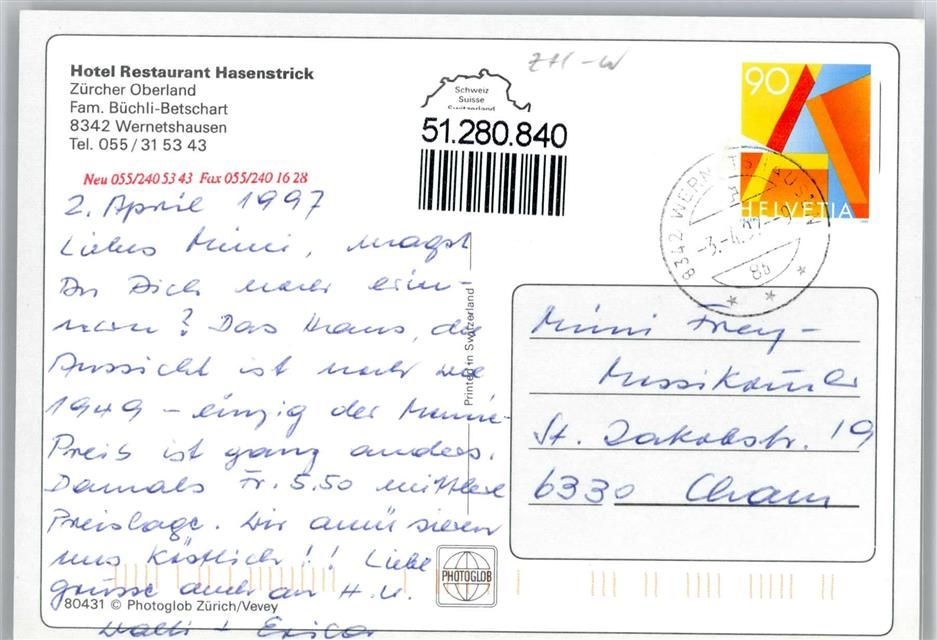 Hotel Restaurant Hasenstrick
Zürcher Oberland
Fam. Büchli-Betschart
8342 Wernetshausen
Tel. 055 / 31 53 43
Neu 055/240 53 43 Fax 055/240 16 28
ZH-W
Schweiz
Suisse
Switzerland
51.280.840
90
HELVETIA
8342 WERNETSHAUSEN
-3.-4.97--9
2. April 1997
Liebes Mimi, magst
Du Dich noch erin-
nern? Das Haus, die
Aussicht ist noch wie
1949 - einzig der Menue-
Preis ist ganz anders.
Damals Fr. 5.50 mittlere
Preislage. Wir amüsieren
uns köstlich!! Liebe
grüsse auch an H.U.
Walti + Erica
Printed in Switzerland
Mimi Frey-
St. Jakobstr. 19
6330 Cham
PHOTOGLOB
80431 © Photoglob Zürich/Vevey